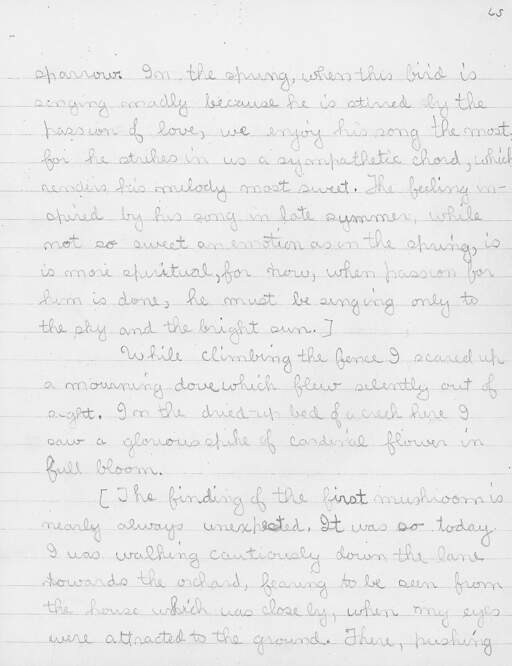 65
sparrow. In the spring, when this bird is
singing madly because he is stirred by the
passion of love, we enjoy his song the most,
for he strikes in us a sympathetic chord, which
renders his melody most sweet. The feeling in-
spired by his song in late summer, while
not so sweet an emotion as in the spring, is
is more spiritual, for now, when passion for
him is done, he must be singing only to
the sky and the bright sun.]
While climbing the fence I scared up
a mourning dove which flew silently out of
sight. In the dried-up bed of a creek here I
saw a glorious spike of cardinal flower in
full bloom.
[The finding of the first mushroom is
nearly always unexpected. It was so today.
I was walking cautiously down the lane
towards the orchard, fearing to be seen from
the house which was close by, when my eyes
were attracted to the ground. There, pushing